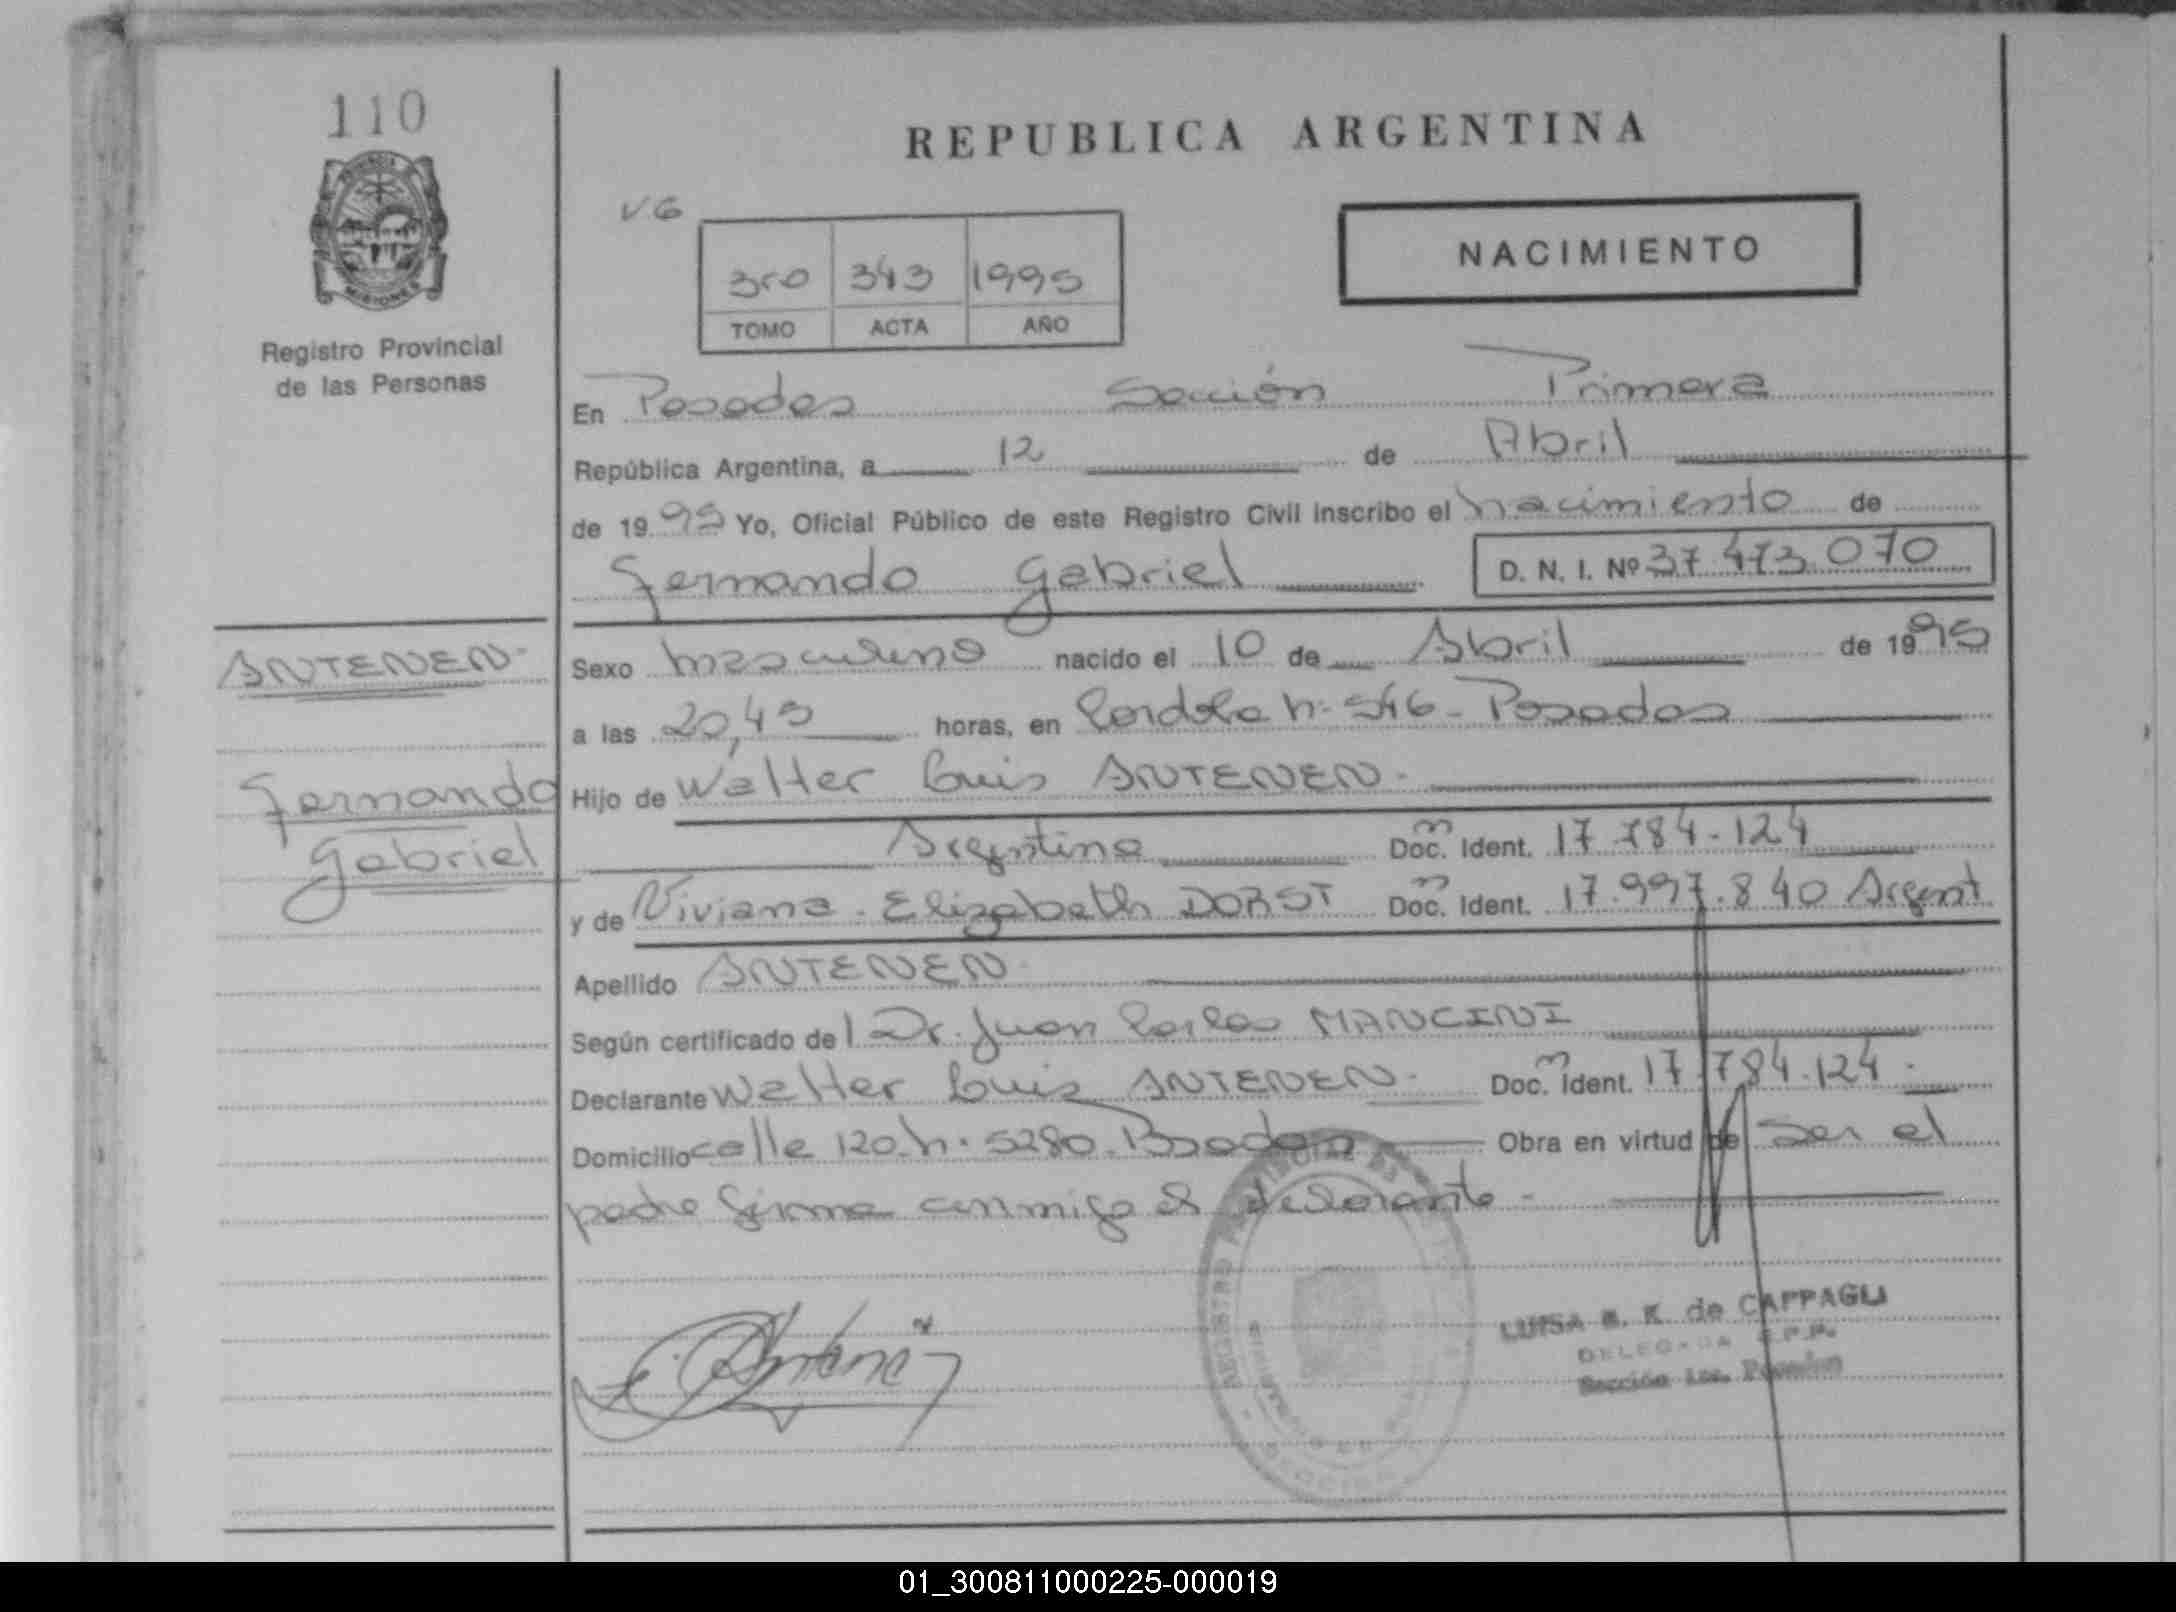 110
PROVINCIA
MISIONES
Registro Provincial
de las Personas
REPUBLICA ARGENTINA
V6
3ro 343 1995
TOMO ACTA AÑO
NACIMIENTO
En Posadas Sección Primera
República Argentina, a 12 de Abril
de 1995 Yo, Oficial Público de este Registro Civil inscribo el nacimiento de
Fernando Gabriel D. N. I. Nº 37.473.070
ANTENEN.
Sexo masculino nacido el 10 de Abril de 1995
a las 20,45 horas, en Cordoba n. 546 - Posadas
Fernando
Gabriel
Hijo de Walter Luis ANTENEN.
Argentino Doc. Ident. 17.784.124
y de Viviana Elizabeth DORST Doc. Ident. 17.997.840 Argent
Apellido ANTENEN
Según certificado de l Dr. Juan Carlos MANCINI
Declarante Walter Luis ANTENEN. Doc. Ident. 17.784.124.
Domicilio calle 120 n. 5280. Posadas Obra en virtud de ser el
padre firma conmigo el declarante -
REGISTRO PROVINCIAL DE
LUISA E. K. de CAPPAGLI
DELEGADA R.P.P.
Sección 1ra. Posadas
01_300811000225-000019